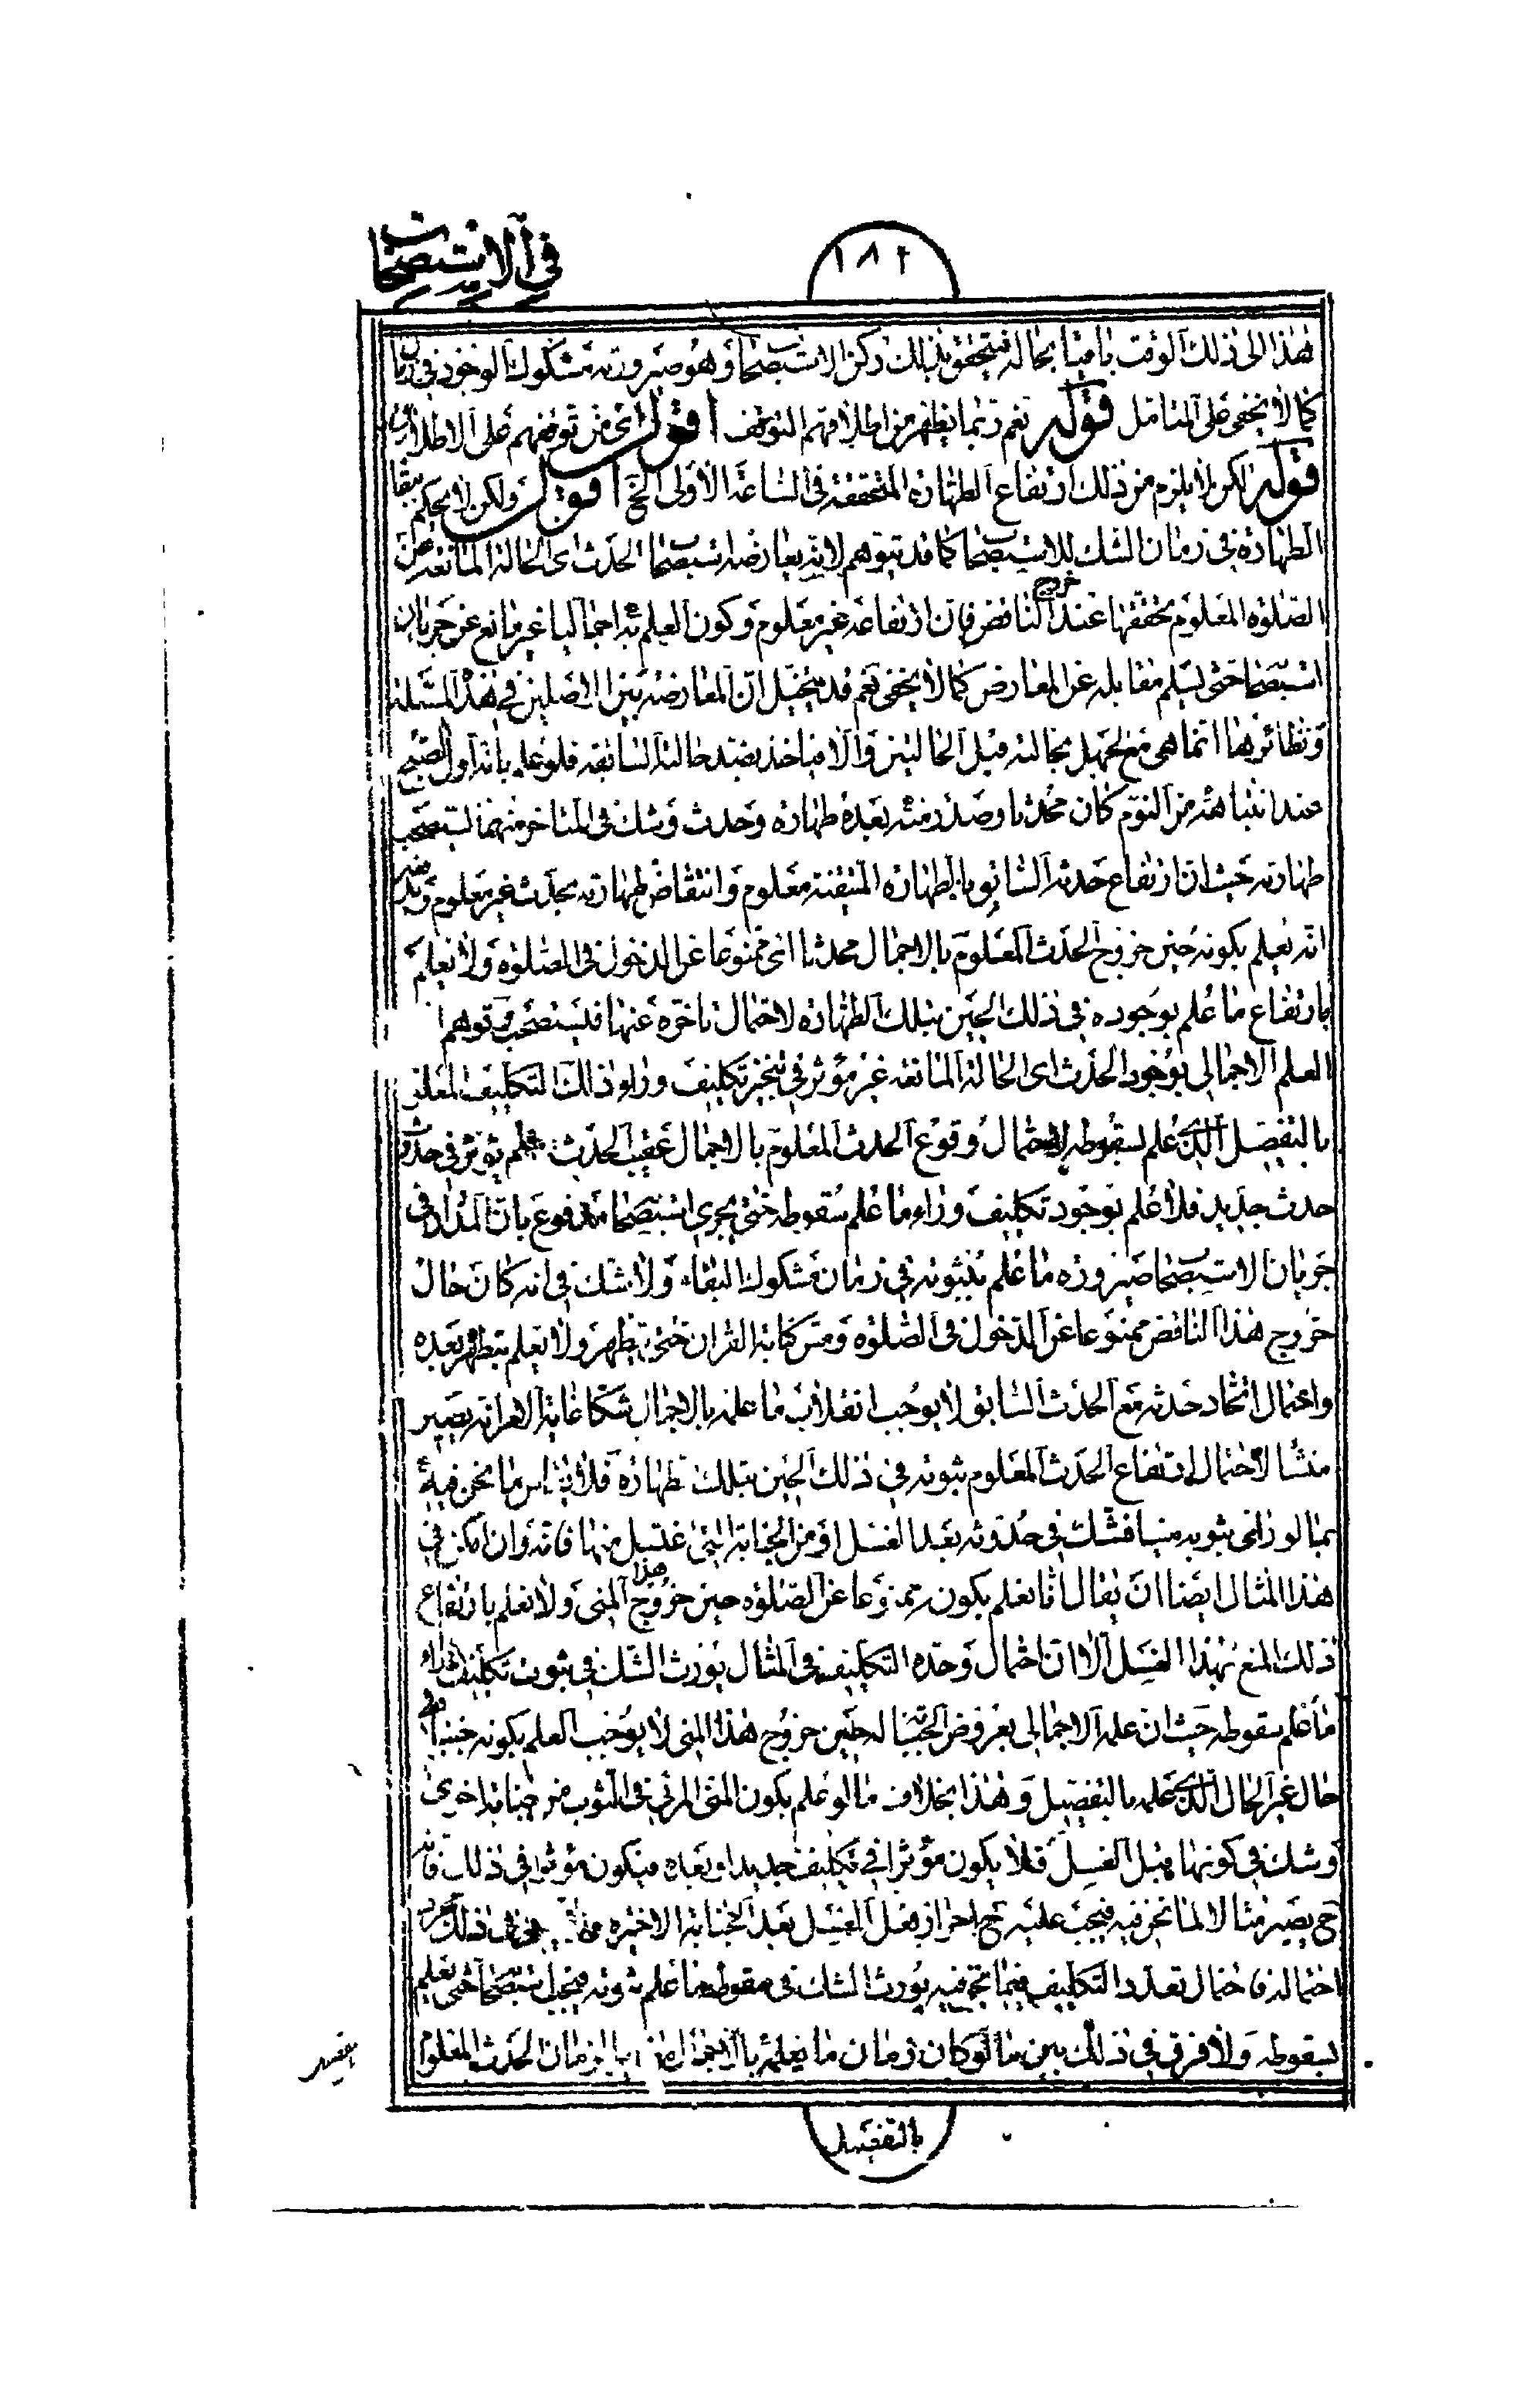 في الاستصحاب
١٨٢
هذا الى ذلك الوقت باقيا بحاله فيتحقق بذلك ركن الاستصحاب وهو صيرورته مشكوك الوجود في زمان
كما لا يخفى على المتامل قوله نعم ربما يظهر من اطلاقهم التوقف اقول اى من توقفهم على الاطلاق
قوله لكن لا يلزم من ذلك ارتفاع الطهارة المتحققة في الساعة الاولى الخ اقول ولكن لا يحكم ببقاء
الطهارة في زمان الشك للاستصحاب كما قد يتوهم لانه يعارضه استصحاب الحدث اى الحالة المانعة عن
الصلوة المعلوم تحققها عند خروج الناقض فان ارتفاعه غير معلوم وكون العلم به اجماليا غير مانع عن جريان
استصحابه حتى يسلم مقابله عن المعارض كما لا يخفى نعم قد يتخيل ان المعارضة بين الاصلين في هذه المسئلة
ونظائرها انما هى مع الجهل بحالته قبل الحالتين والا فياخذ بضد حالته السابقة فلو علم بانه اول الصبح
عند انتباهه من النوم كان محدثا وصدر منه بعده طهارة وحدث وشك في المتاخر منهما يستصحب
طهارته حيث ان ارتفاع حدثه السابق بالطهارة المتيقنة معلوم وانتقاض طهارته بحدث غير معلوم وفيه
انه يعلم بكونه حين خروج الحدث المعلوم بالاجمال محدثا اى ممنوعا عن الدخول في الصلوة ولا يعلم
بارتفاع ما علم بوجوده في ذلك الحين بتلك الطهارة لاحتمال تاخره عنها فليستصحب وتوهم ان
العلم الاجمالى بوجود الحدث اى الحالة المانعة غير مؤثر في تنجيز تكليف وراء ذلك التكليف المعلوم
بالتفصيل الذى علم بسقوطه لاحتمال وقوع الحدث المعلوم بالاجمال عقيب الحدث فلم يؤثر في حدوث
حدث جديد فلا علم بوجود تكليف وراء ما علم سقوطه حتى يجرى استصحابه مدفوع بان المدار في
جريان الاستصحاب صيرورة ما علم بثبوته في زمان مشكوك البقاء ولا شك في انه كان حال
خروج هذا الناقض ممنوعا عن الدخول في الصلوة ومس كتابة القران حتى يتطهر ولا يعلم بتطهره بعده
واحتمال اتحاد حدثه مع الحدث السابق لا يوجب انقلاب ما علمه بالاجمال شكا غاية الامر انه يصير
منشا لاحتمال ارتفاع الحدث المعلوم ثبوته في ذلك الحين بتلك الطهارة فلا يقاس ما نحن فيه
بما لو راى بثوبه منيا فشك في حدوثه بعد الغسل او من الجنابة التى اغتسل منها فانه وان امكن في
هذا المثال ايضا ان يقال انا نعلم بكونه ممنوعا عن الصلوة حين خروج هذا المنى ولا نعلم بارتفاع
ذلك المنع بهذا الغسل الا ان احتمال وحدة التكليف في المثال يورث الشك في ثبوت تكليف وراء
ما علم سقوطه حيث ان علمه الاجمالى بعروض الجنابة له حين خروج هذا المنى لا يوجب العلم بكونه جنبا في
حال غير الحال الذى علمه بالتفصيل وهذا بخلاف ما لو علم بكون المنى المرئى في الثوب من جنابة اخرى
وشك في كونها قبل الغسل فلا يكون مؤثرا في تكليف جديد او بعده فيكون مؤثرا في ذلك فانه
ح يصير مثالا لما نحن فيه فيجب عليه ح احراز فعل الغسل بعد الجنابة الاخيرة ولا يكفى في ذلك مجرد
احتماله فاحتمال تعدد التكليف فيما نحن فيه يورث الشك في سقوط ما علم ثبوته فيجب استصحابه حتى يعلم
بسقوطه ولا فرق في ذلك بين ما لو كان زمان ما يعلمه بالاجمال مغايرا لزمان الحدث المعلوم
بالتفصيل